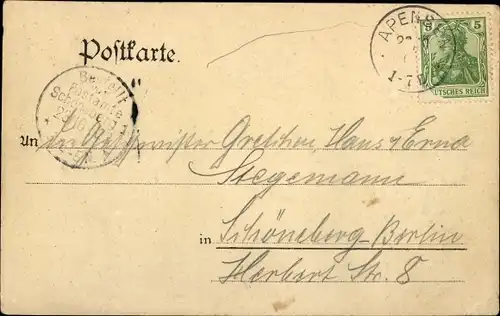 Postkarte.
APENS
1-7
5 5
DEUTSCHES REICH
Bestellt
vom
Postamte
Schöneberg 1
An die Geschwister Gretchen, Hans & Erna
Siegemann
in Schöneberg-Berlin
Herbert Str. 8